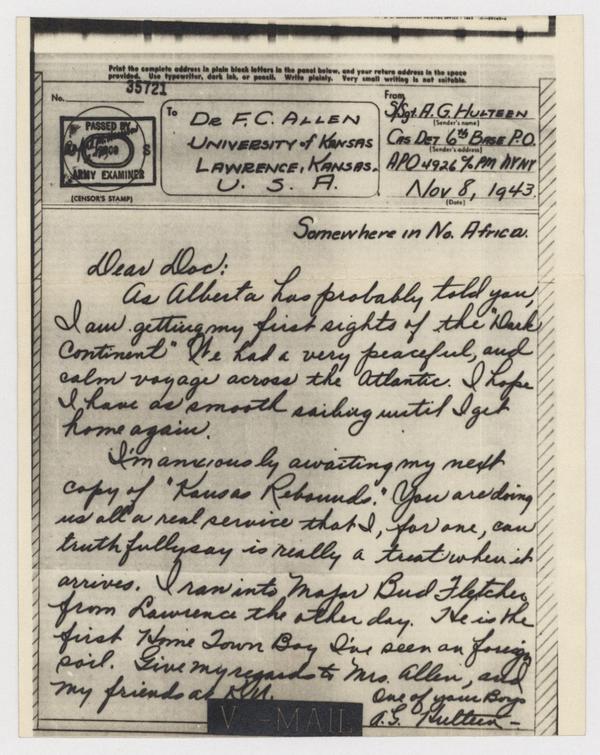 Print the complete address in plain block letters in the panel below, and your return address in the space
provided. Use typewriter, dark ink, or pencil. Write plainly. Very small writing is not suitable.
No. 35721
PASSED BY
S
ARMY EXAMINER
(CENSOR'S STAMP)
To
DR F.C. ALLEN
UNIVERSITY of KANSAS
LAWRENCE, KANSAS.
U. S. A.
From
S/Sgt. A. G. HULTEEN
(Sender's name)
CAS DET 6th BASE P.O.
(Sender's address)
APO 4926 % PM NYNY
Nov 8, 1943.
(Date)
Somewhere in No. Africa.
Dear Doc:
As Alberta has probably told you,
I am getting my first sights of the "Dark
Continent" We had a very peaceful, and
calm voyage across the Atlantic. I hope
I have as smooth sailing until I get
home again.
I'm anxiously awaiting my next
copy of "Kansas Rebounds." You are doing
us all a real service that I, for one, can
truthfully say is really a treat when it
arrives. I ran into Major Bud Fletcher
from Lawrence the other day. He is the
first Home Town Boy I've seen on foreign
soil. Give my regards to Mrs. Allen, and
my friends at K.U.
One of your Boys
A.G. Hulteen -
V - MAIL